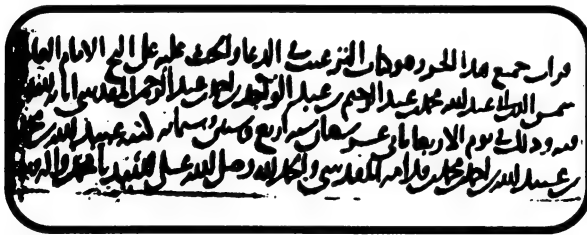 قرات جميع هذا الجزء وهو كتاب الترغيب في الدعا والحث عليه على الشيخ الامام العالم
شمس الدين ابي عبد الله محمد بن عبد الرحيم بن عبد الواحد بن احمد بن عبد الرحمن المقدسي اثابه الله
وذلك في يوم الاربعا ثاني عشر شعبان سنه اربع وستين وستمائه كتبه عبيد الله بن محمد
بن عبيد الله بن احمد بن محمد بن قدامه المقدسي والحمد لله وصلى الله على محمد واله